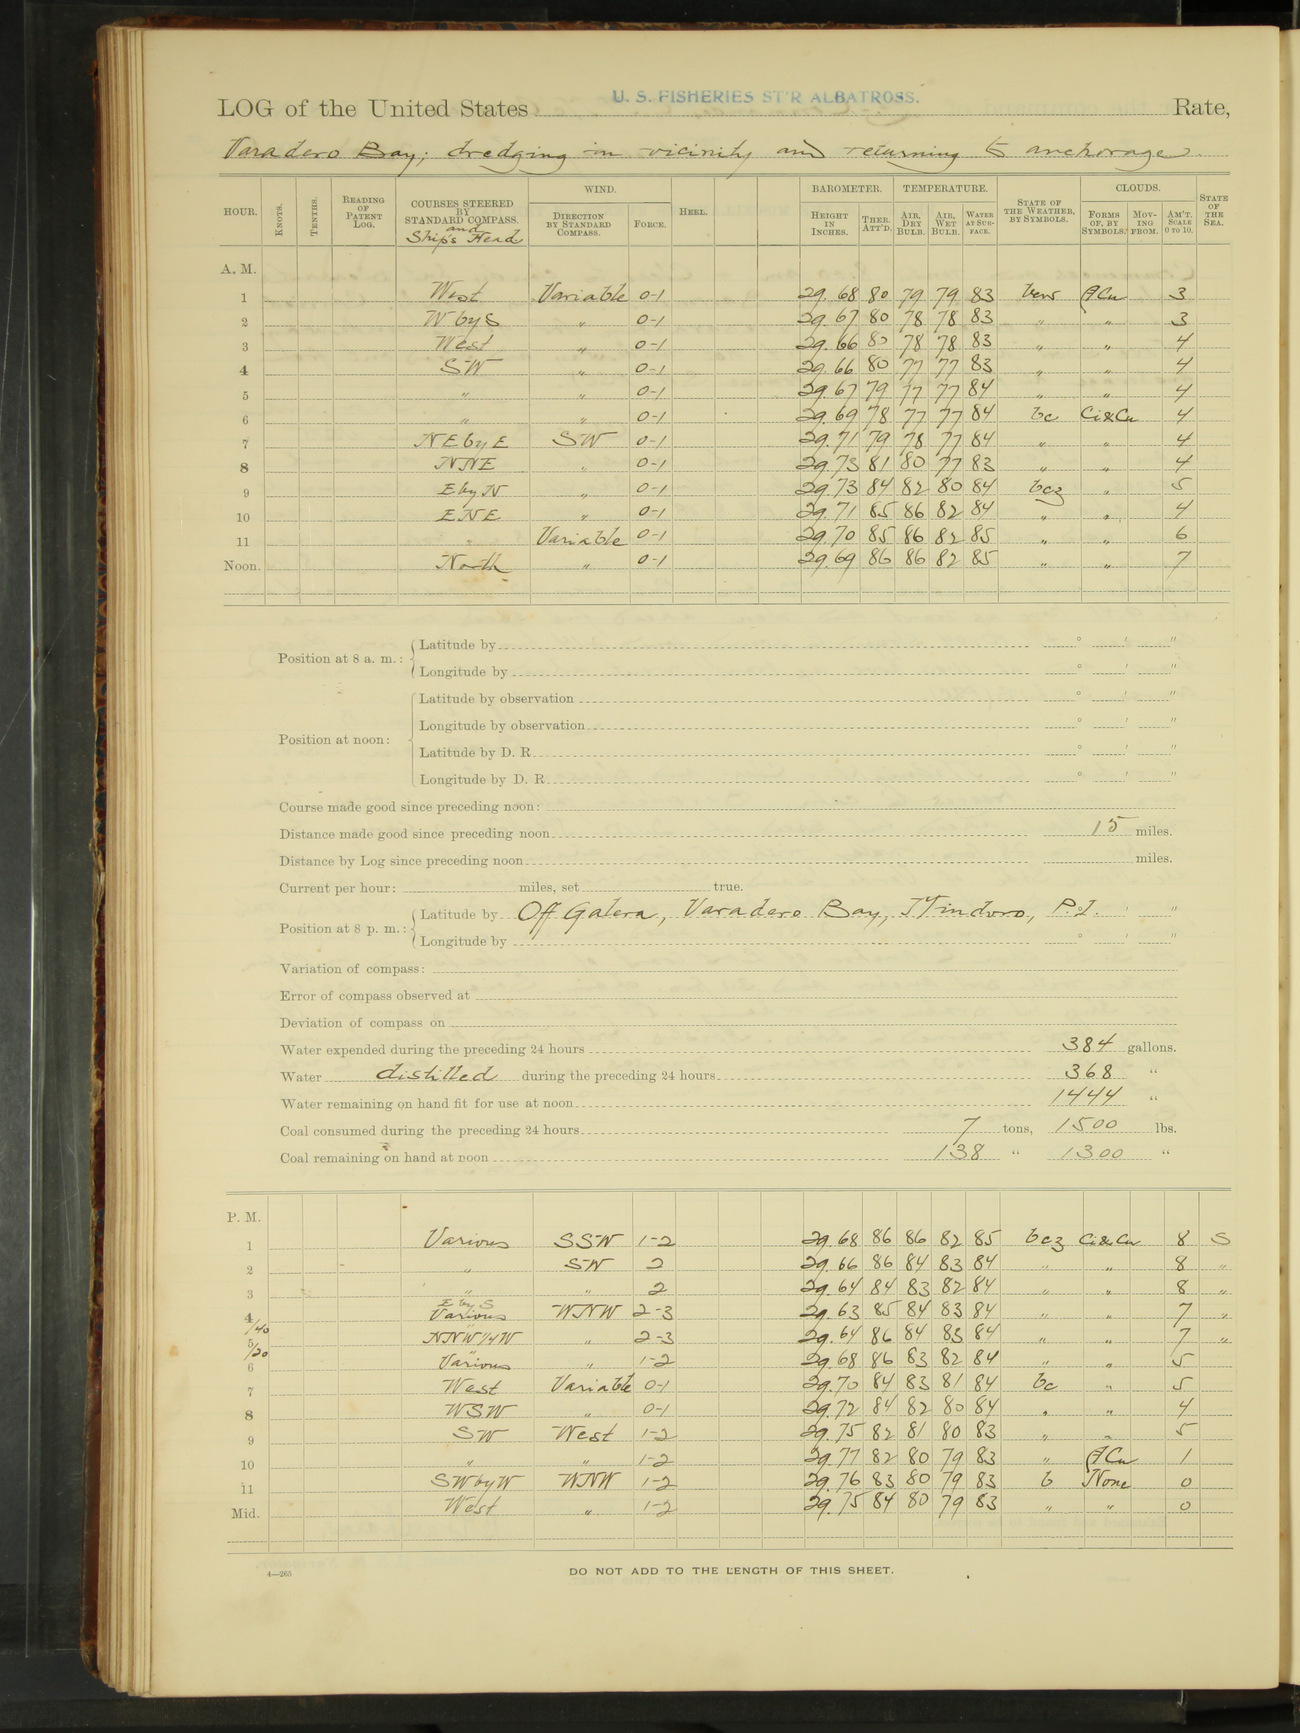 LOG of the United States U. S. FISHERIES ST'R ALBATROSS. Rate,
Varadero Bay; dredging in vicinity and returning to anchorage.
HOUR. KNOTS. TENTHS. READING OF PATENT LOG. COURSES STEERED BY STANDARD COMPASS. and Ship's Head WIND. DIRECTION BY STANDARD COMPASS. FORCE. HEEL. BAROMETER. HEIGHT IN INCHES. THER. ATT'D. TEMPERATURE. AIR, DRY BULB. AIR, WET BULB. WATER AT SURFACE. STATE OF THE WEATHER, BY SYMBOLS. CLOUDS. FORMS OF, BY SYMBOLS. MOVING FROM. AM'T. SCALE 0 TO 10. STATE OF THE SEA.
A. M.
1 West Variable 0-1 29.68 80 79 79 83 ACu 3
2 W by S " 0-1 29.67 80 78 78 83 " " 3
3 West " 0-1 29.66 80 78 78 83 " " 4
4 SW " 0-1 29.66 80 77 77 83 " " 4
5 " " 0-1 29.67 79 77 77 84 " " 4
6 " " 0-1 29.69 78 77 77 84 bc Ci&Cu 4
7 NE by E SW 0-1 29.71 79 78 77 84 " " 4
8 NNE " 0-1 29.73 81 80 77 83 " " 4
9 E by N " 0-1 29.73 84 82 80 84 bcz " 5
10 ENE " 0-1 29.71 85 86 82 84 " " 4
11 " Variable 0-1 29.70 85 86 82 85 " " 6
Noon. North " 0-1 29.69 86 86 82 85 " " 7
Position at 8 a. m.: Latitude by ° ' "
Longitude by ° ' "
Position at noon: Latitude by observation ° ' "
Longitude by observation ° ' "
Latitude by D. R. ° ' "
Longitude by D. R. ° ' "
Course made good since preceding noon:
Distance made good since preceding noon 15 miles.
Distance by Log since preceding noon miles.
Current per hour: miles, set true.
Position at 8 p. m.: Latitude by Off Galera, Varadero Bay, Mindoro, P.I. ' "
Longitude by ° ' "
Variation of compass:
Error of compass observed at
Deviation of compass on
Water expended during the preceding 24 hours 384 gallons.
Water distilled during the preceding 24 hours 368 "
Water remaining on hand fit for use at noon 1444 "
Coal consumed during the preceding 24 hours 7 tons, 1500 lbs.
Coal remaining on hand at noon 138 " 1300 "
P. M.
1 Various SSW 1-2 29.68 86 86 82 85 bcz Ci&Cu 8 S
2 " SW 2 29.66 86 84 83 84 " " 8 "
3 " " 2 29.64 84 83 82 84 " " 8 "
4 E by S Various WNW 2-3 29.63 85 84 83 84 " " 7 "
/40
5 NNW 1/4 W " 2-3 29.64 86 84 83 84 " " 7 "
/20
6 Various " 1-2 29.68 86 83 82 84 " " 5
7 West Variable 0-1 29.70 84 83 81 84 bc " 5
8 WSW " 0-1 29.72 84 82 80 84 " " 4
9 SW West 1-2 29.75 82 81 80 83 " " 5
10 " " 1-2 29.77 82 80 79 83 " ACu 1
11 SW by W WNW 1-2 29.76 83 80 79 83 b None 0
Mid. West " 1-2 29.75 84 80 79 83 " " 0
4—265
DO NOT ADD TO THE LENGTH OF THIS SHEET.